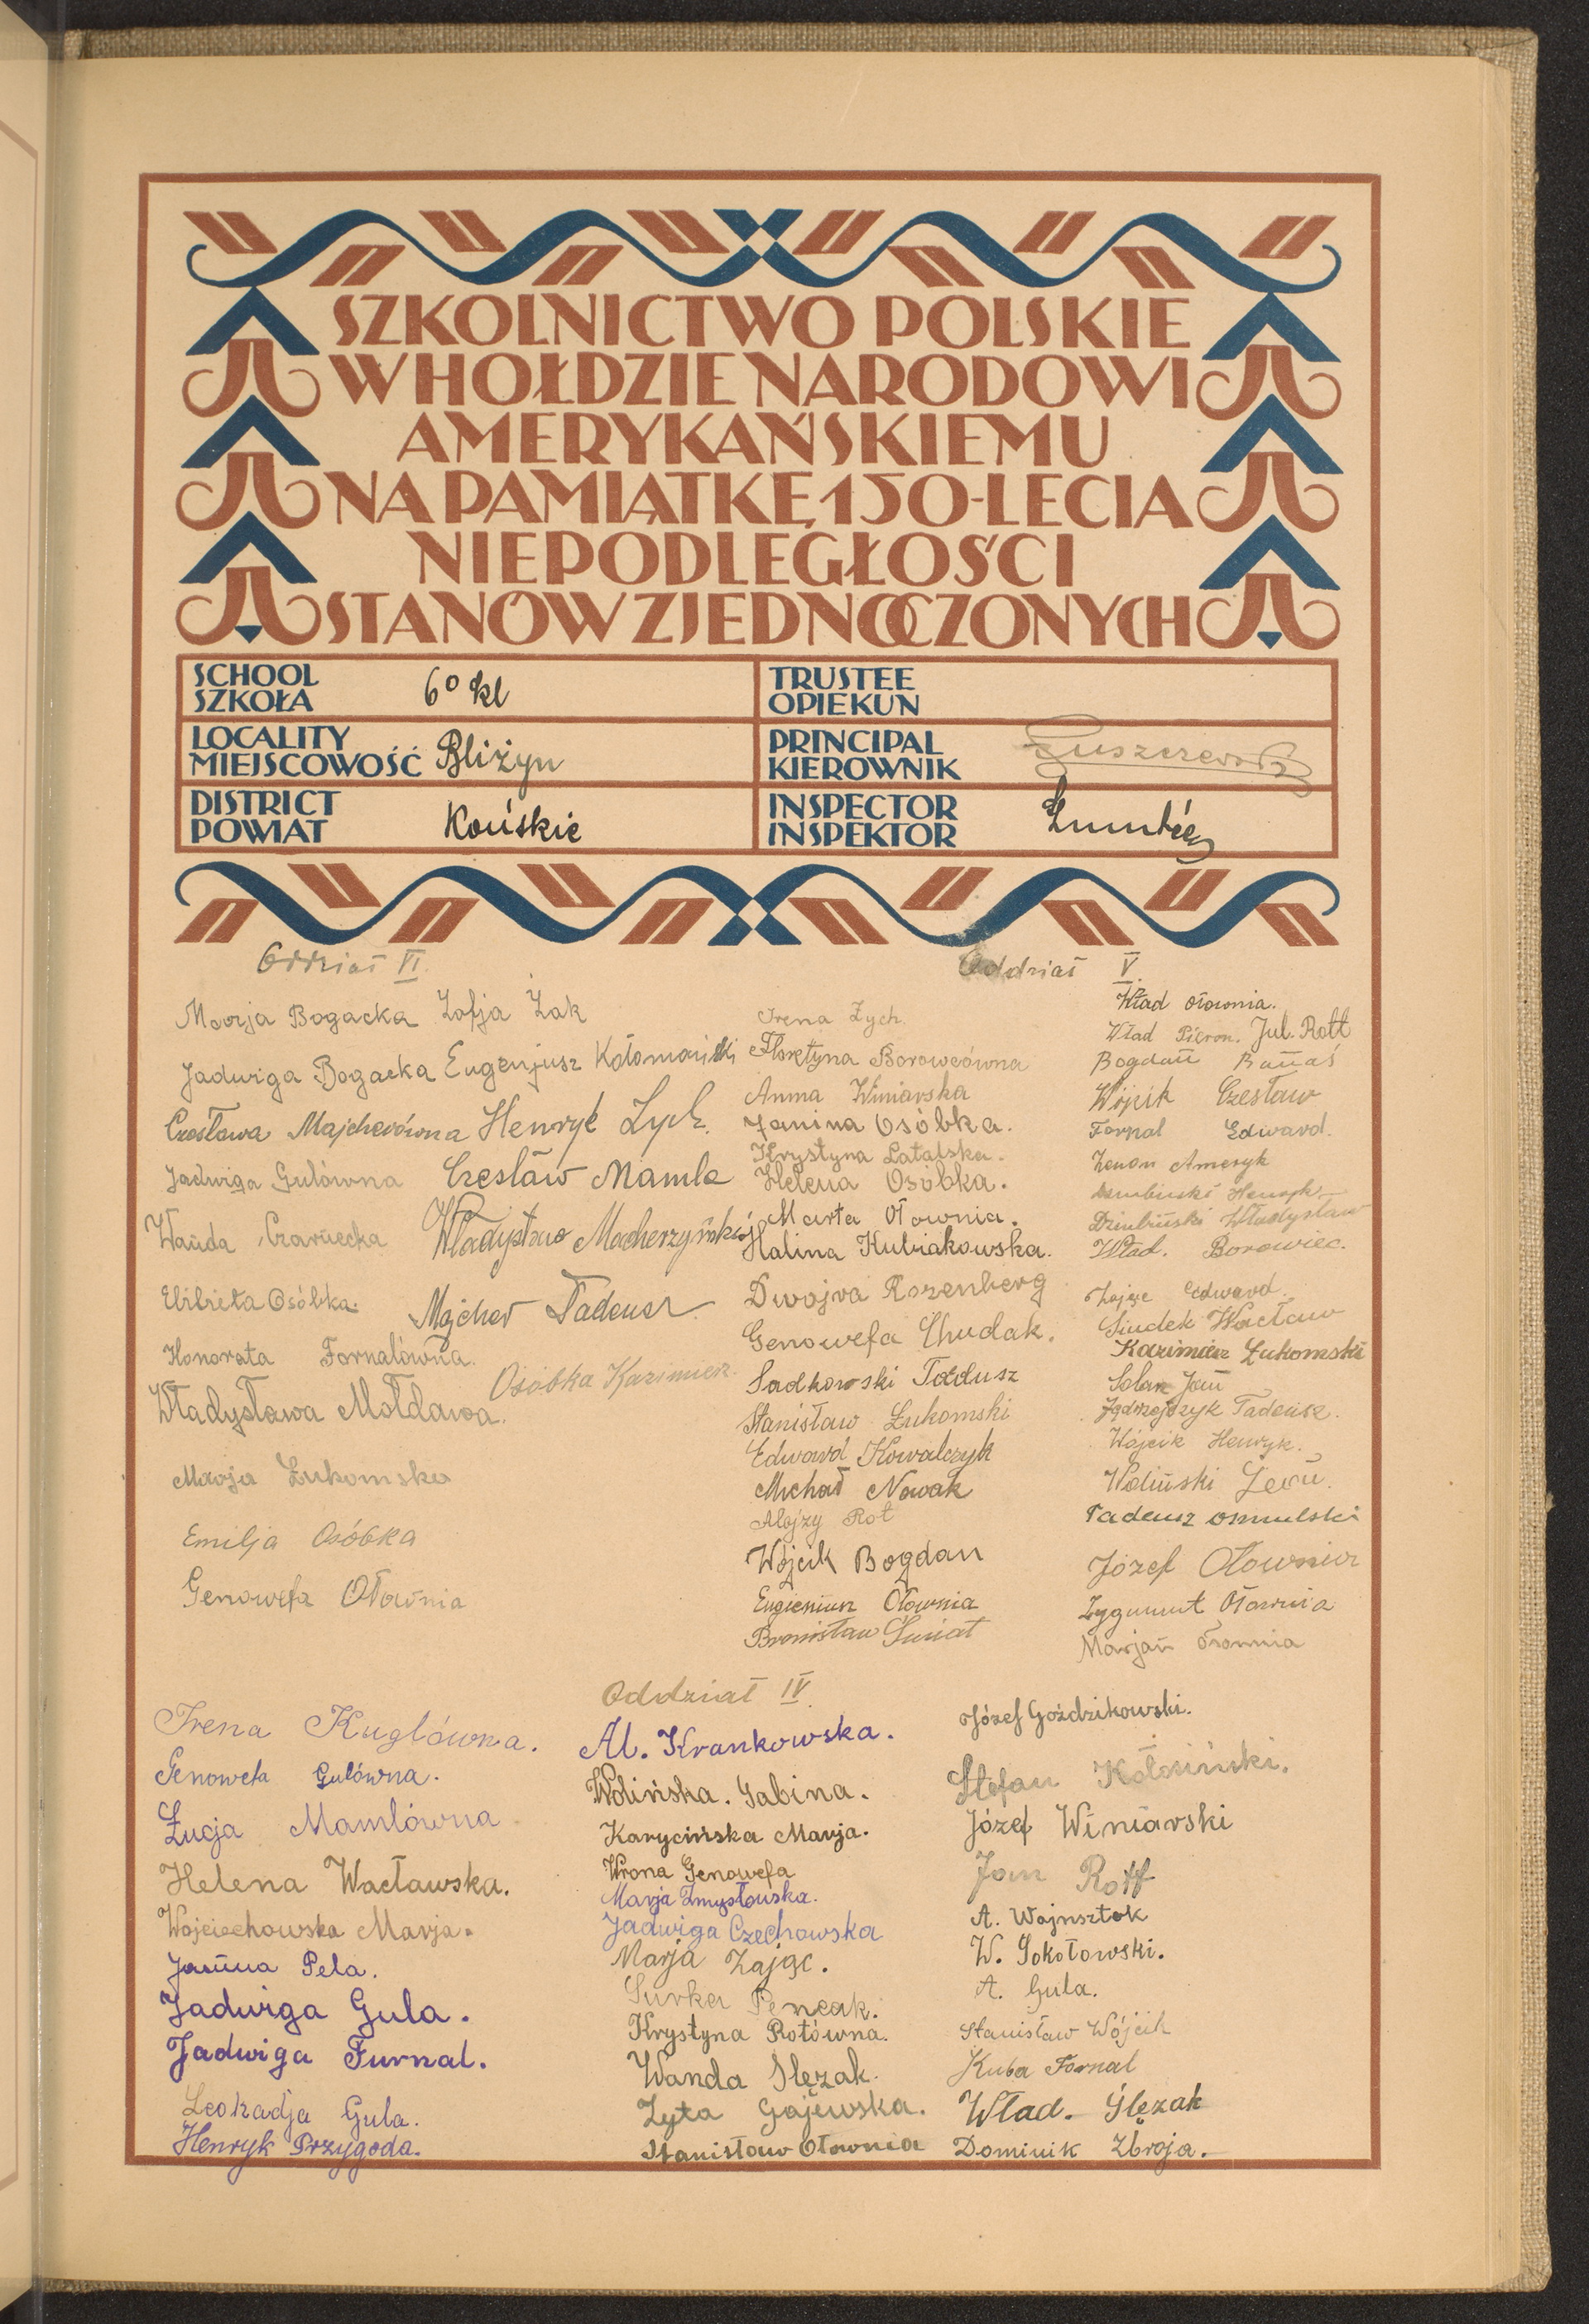 SZKOLNICTWO POLSKIE
W HOŁDZIE NARODOWI
AMERYKAŃSKIEMU
NA PAMIĄTKĘ 150-LECIA
NIEPODLEGŁOŚCI
STANÓW ZJEDNOCZONYCH
SCHOOL
SZKOŁA
6º kl
TRUSTEE
OPIEKUN
LOCALITY
MIEJSCOWOŚĆ
Bliżyn
PRINCIPAL
KIEROWNIK
DISTRICT
POWIAT
Końskie
INSPECTOR
INSPEKTOR
Oddział VI.
Marja Bogacka
Jadwiga Bogacka
Czesława Majcherówna
Jadwiga Gulówna
Wanda Czarnecka
Elżbieta Osóbka.
Honorata Fornalówna.
Władysława Mołdawa.
Marja Łukomska
Emilja Osóbka
Genowefa Ołownia
Zofja Żak
Eugenjusz Kołomański
Henryk Zych.
Czesław Mamla
Władysław Macherzyński
Majcher Tadeusz
Osóbka Kazimierz
Oddział V.
Irena Zych.
Florętyna Borowcówna
Anna Winiarska
Janina Osóbka.
Krystyna Latalska.
Helena Osóbka.
Marta Ołownia.
Halina Kubiakowska.
Dwojra Rozenberg
Genowefa Chudak.
Sadkowski Tadusz
Stanisław Łukomski
Edward Kowalczyk
Michał Nowak
Alojzy Rot
Wójcik Bogdan
Eugieniusz Ołownia
Bronisław Świat
Wład Ołownia.
Wład Pieron. Jul. Rott
Bogdan Banaś
Wójcik Czesław
Fornal Edward.
Zenon Ameryk
Henryk
Dziubiński Władysław
Wład. Borowiec.
Zając Edward.
Siudek Wacław
Kazimierz Łukomski
Solarz Jan
Jędrzejczyk Tadeusz.
Wójcik Henryk.
Woliński Leon.
Tadeusz Osmulski
Józef Ołownia
Zygmunt Ołownia
Marjan
Irena Kuglówna.
Genowefa Gulówna.
Łucja Mamlówna
Helena Wacławska.
Wojciechowska Marja.
Janina Pela.
Jadwiga Gula.
Jadwiga Furnal.
Leokadja Gula.
Henryk Przygoda.
Oddział IV.
Al. Krankowska.
Wolińska. Gabina.
Karycińska Marja.
Wrona Genowefa
Marja Zmysłowska.
Jadwiga Czechowska
Marja Zając.
Surka Pencak.
Krystyna Rotówna.
Wanda Ślęzak.
Zyta Gajewska.
Stanisław Ołownia
Józef Goździkowski.
Stefan Kołosiński.
Józef Winiarski
Jan Rott
A. Wajnsztok
W. Sokołowski.
A. Gula.
Stanisław Wójcik
Kuba Fornal
Wład. Ślęzak
Dominik Zbroja.